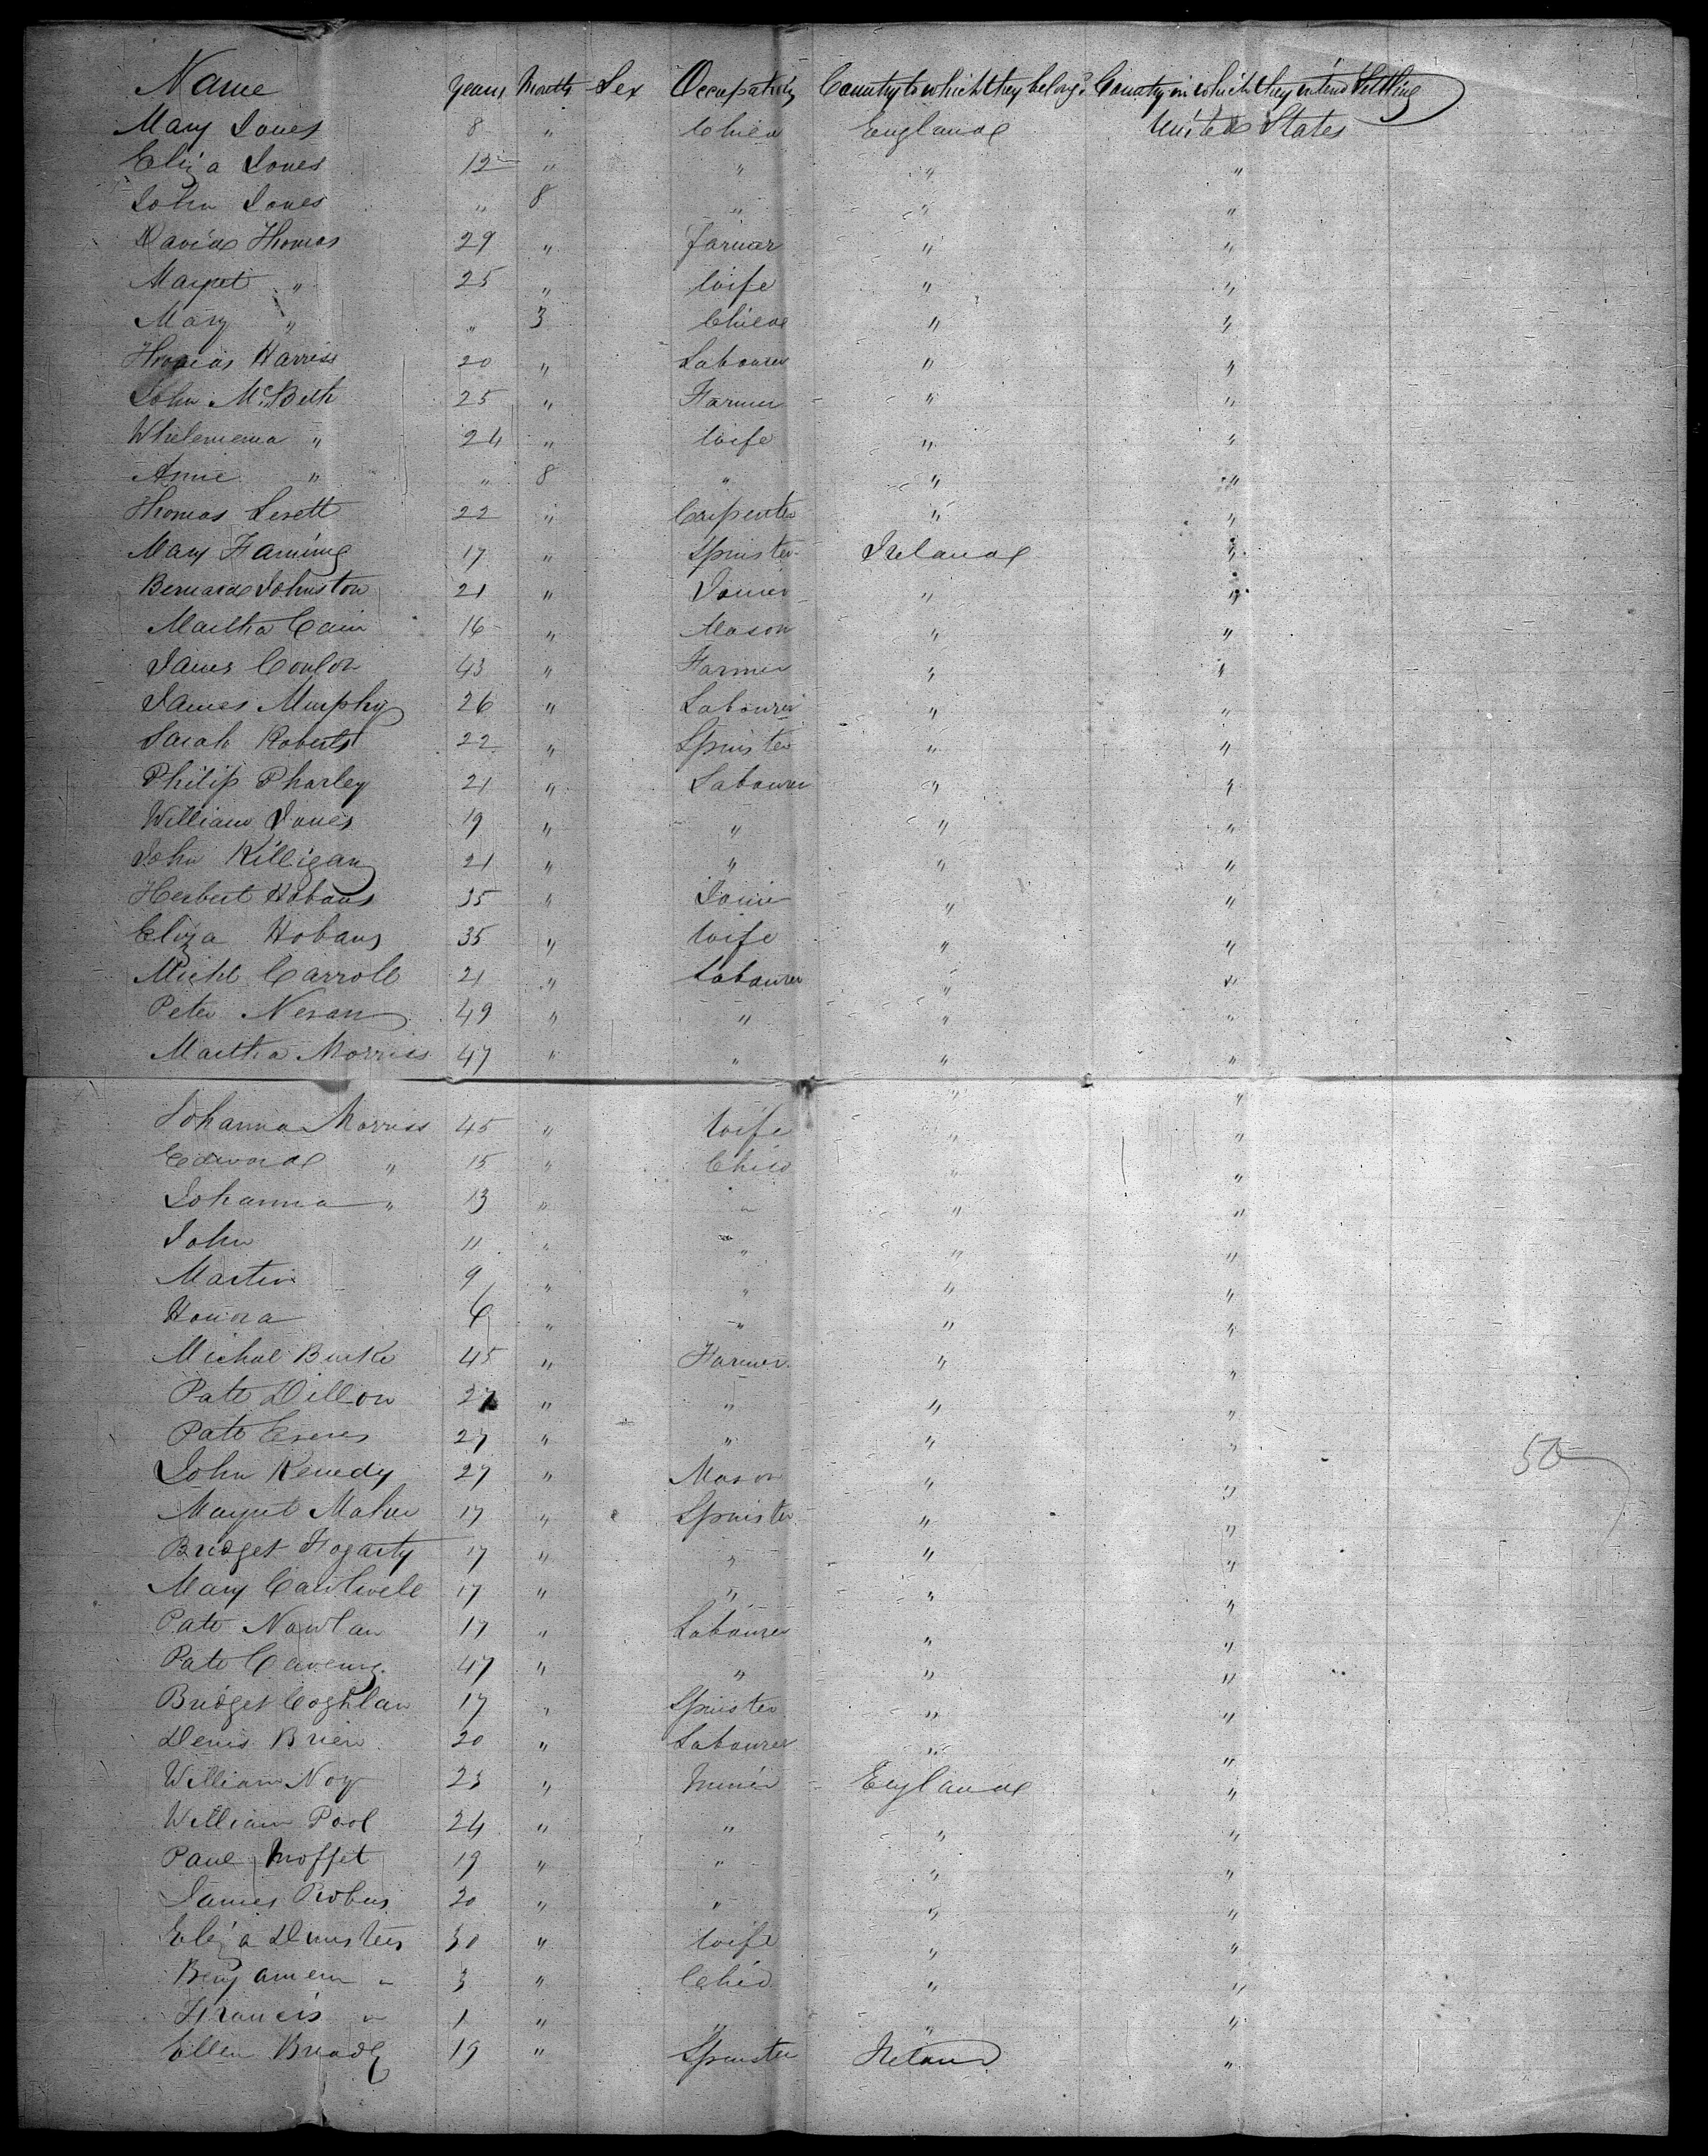 Name Years Month Sex Occupation Country to which they belong Country in which they intend Settling
Mary Jones 8 " Child England United States
Eliza Jones 12 " " " "
John Jones " 8 " " "
David Thomas 29 " farmer " "
Margret " 25 " Wife " "
Mary " " 3 Child " "
Thomas Harriss 20 " Labourer " "
John McBeth 25 " Farmer " "
Whelemema " 24 " Wife " "
Annie " " 8 " " "
Thomas Levett 22 " Carpenter " "
Mary Fanning 17 " Spinster Ireland "
Bernard Johnston 21 " Joiner " "
Martha Cain 16 " Mason " "
James Conlon 43 " Farmer " "
James Murphy 26 " Labourer " "
Sarah Roberts 22 " Spinster " "
Philip Pharley 21 " Labourer " "
William Jones 19 " " " "
John Killigan 21 " " " "
Herbert Hobans 35 " Joiner " "
Eliza Hobans 35 " Wife " "
Michl Carroll 21 " Labourer " "
Peter Neran 49 " " " "
Martha Morriss 47 " " " "
" "
Johanna Morriss 45 " Wife " "
Edward " 15 " Child " "
Johanna " 13 " " " "
John 11 " " " "
Martin 9 " " " "
Honora 6 " " " "
Michal Burke 45 " Farmer " "
Patk Dillon 27 " " " "
Patk 27 " " " "
John Kenedy 27 " Mason " "
50
Margret Maher 17 " Spinster " "
Bridget Fogarty 17 " " " "
Mary Cantwell 17 " " " "
Patk Nowlan 17 " Labourer " "
Patk 47 " " " "
Bridget Coghlan 17 " Spinster " "
Denis Brien 20 " Labourer " "
William Noy 23 " Miner England "
William Pool 24 " " " "
Paul Moffet 19 " " " "
James 20 " " " "
Eliza Dunsters 30 " Wife " "
Benjamem " 3 " Child " "
Francis " 1 " " " "
Ellen Bready 19 " Spinster Ireland "